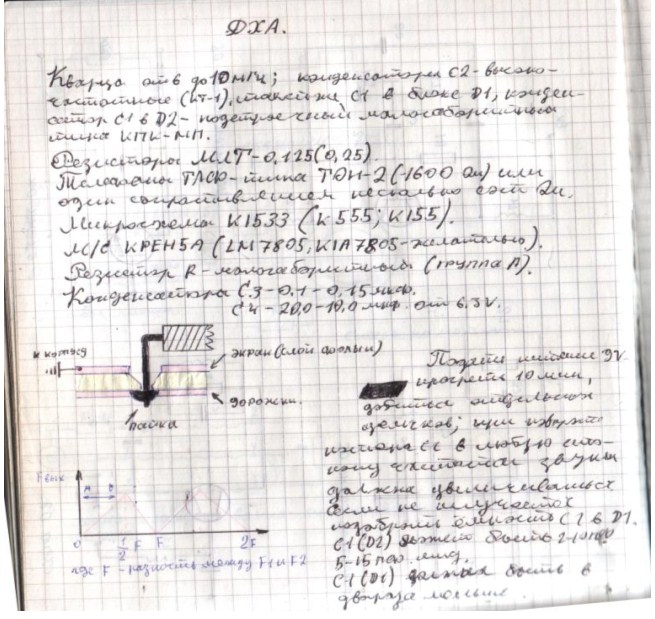 ДХА.
Кварцы от 6 до 10 мгц; конденсаторы С2 - высоко-
частотные (КТ-1), также С1 в блоке D1, конден-
сатор С1 в D2 - подстроечный малогабаритный
типа КПК-МП.
Резисторы МЛТ-0,125 (0,25).
Телефоны типа ТОН-2 (-1600 Ом) или
один сопротивлением несколько сот Ом.
Микросхема К1533 (К555; К155).
М/с КРЕН5А (LM7805, KIA7805-желательно).
Резистор R - малогабаритный (группа А).
Конденсаторы С3 - 0,1 - 0,15 мкф.
С4 - 20,0 - 10,0 мкф. от 6.3V.
к корпусу
экран (слой фольги)
дорожки.
пайка
Подать питание 9V
прогреть 10 мин,
добиться
щелчков; при повороте
ротора С1 в любую сто-
рону частота звука
должна увеличиваться
если не получается
подобрать ёмкость С2 в D1.
С1 (D2) должен быть
5-15 под.
С1 (D1) должна быть в
дважды меньше.
F вых
A B
0 1/2 F F 2F
где F - разность между F1 и F2